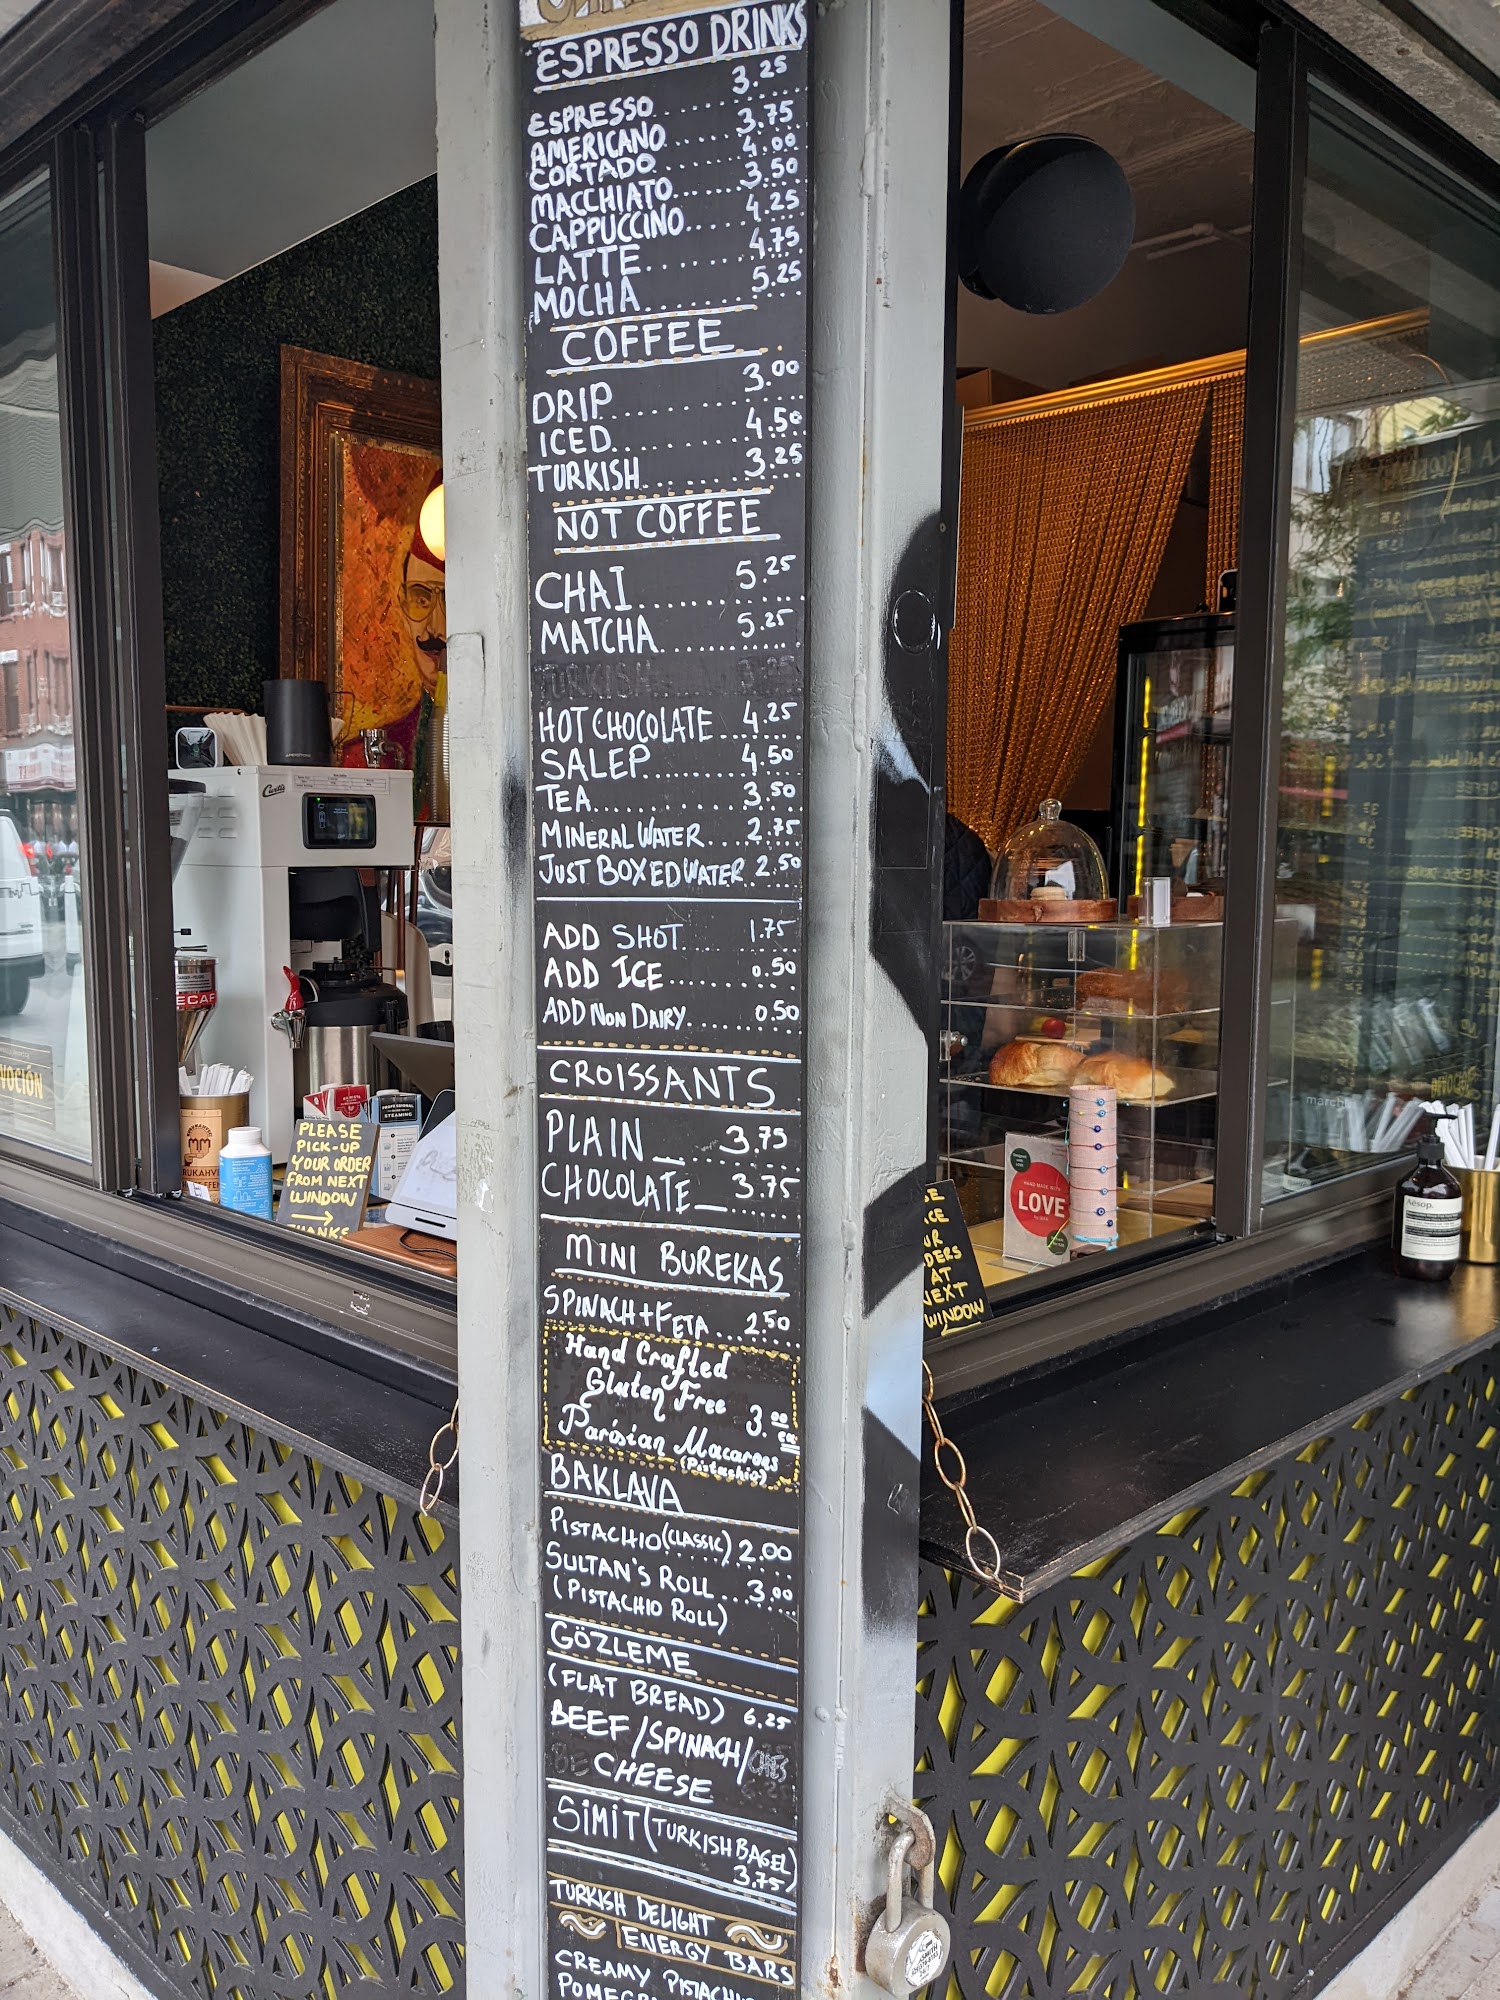 ESPRESSO DRINKS
ESPRESSO..... 3.25
AMERICANO..... 3.75
CORTADO..... 4.00
MACCHIATO..... 3.50
CAPPUCCINO..... 4.25
LATTE..... 4.75
MOCHA..... 5.25
COFFEE
DRIP..... 3.00
ICED..... 4.50
TURKISH..... 3.25
NOT COFFEE
CHAI..... 5.25
MATCHA..... 5.25
TURKISH
HOT CHOCOLATE 4.25
SALEP..... 4.50
TEA..... 3.50
MINERAL WATER.... 2.75
JUST BOXED WATER. 2.50
ADD SHOT.... 1.75
ADD ICE.... 0.50
ADD NON DAIRY.... 0.50
CROISSANTS
PLAIN_.... 3.75
CHOCOLATE_.. 3.75
MINI BUREKAS
SPINACH+FETA... 2.50
Hand Crafted
Gluten Free
Parisian Macarons 3.00 ea
(Pistachio)
BAKLAVA
PISTACHIO (CLASSIC) 2.00
SULTAN'S ROLL... 3.00
(PISTACHIO ROLL)
GÖZLEME
(FLAT BREAD) 6.25
BEEF/SPINACH/
CHEESE
SIMIT (TURKISH BAGEL)
3.75)
TURKISH DELIGHT
ENERGY BARS
CREAMY PISTACHIO
Curtis
DECAF
PLEASE
PICK-UP
YOUR ORDER
FROM NEXT
WINDOW
→
THANKS
PROFESSIONAL
STEAMING
MM
AT
NEXT
WINDOW
HAND MADE WITH
LOVE
Aēsop.